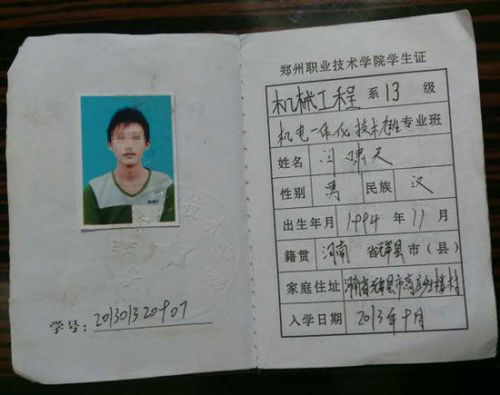 学号: 201301320907
郑州职业技术学院学生证
机械工程 系 13 级
机电一体化技术 专业班
姓名 闫啸天
性别 男 民族 汉
出生年月 1994 年 11 月
籍贯 河南 省 辉县 市(县)
家庭住址 河南省辉县市
入学日期 2013年9月